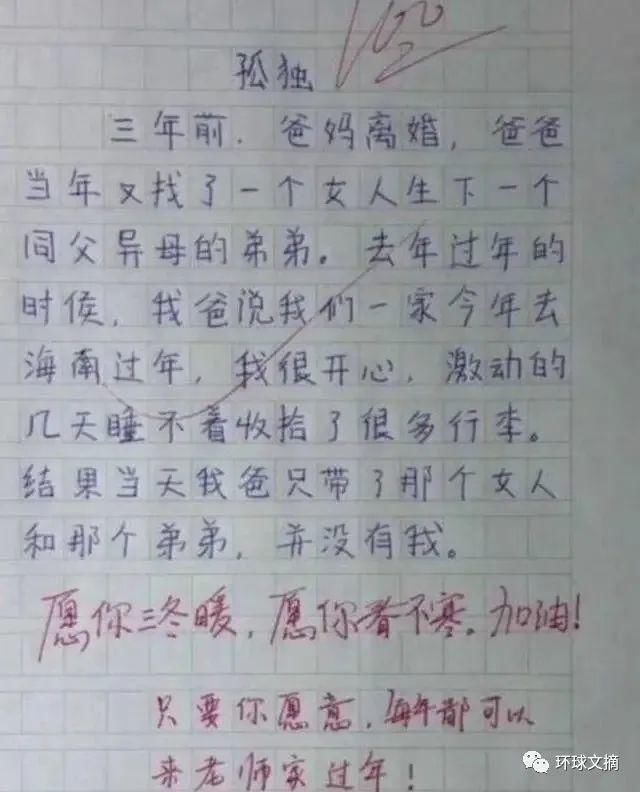 孤独
100
三年前.爸妈离婚,爸爸
当年又找了一个女人生下一个
同父异母的弟弟。去年过年的
时侯,我爸说我们一家今年去
海南过年,我很开心,激动的
几天睡不着收拾了很多行李。
结果当天我爸只带了那个女人
和那个弟弟,并没有我。
愿你三冬暖,愿你春不寒。加油!
只要你愿意,每年都可以
来老师家过年!
环球文摘